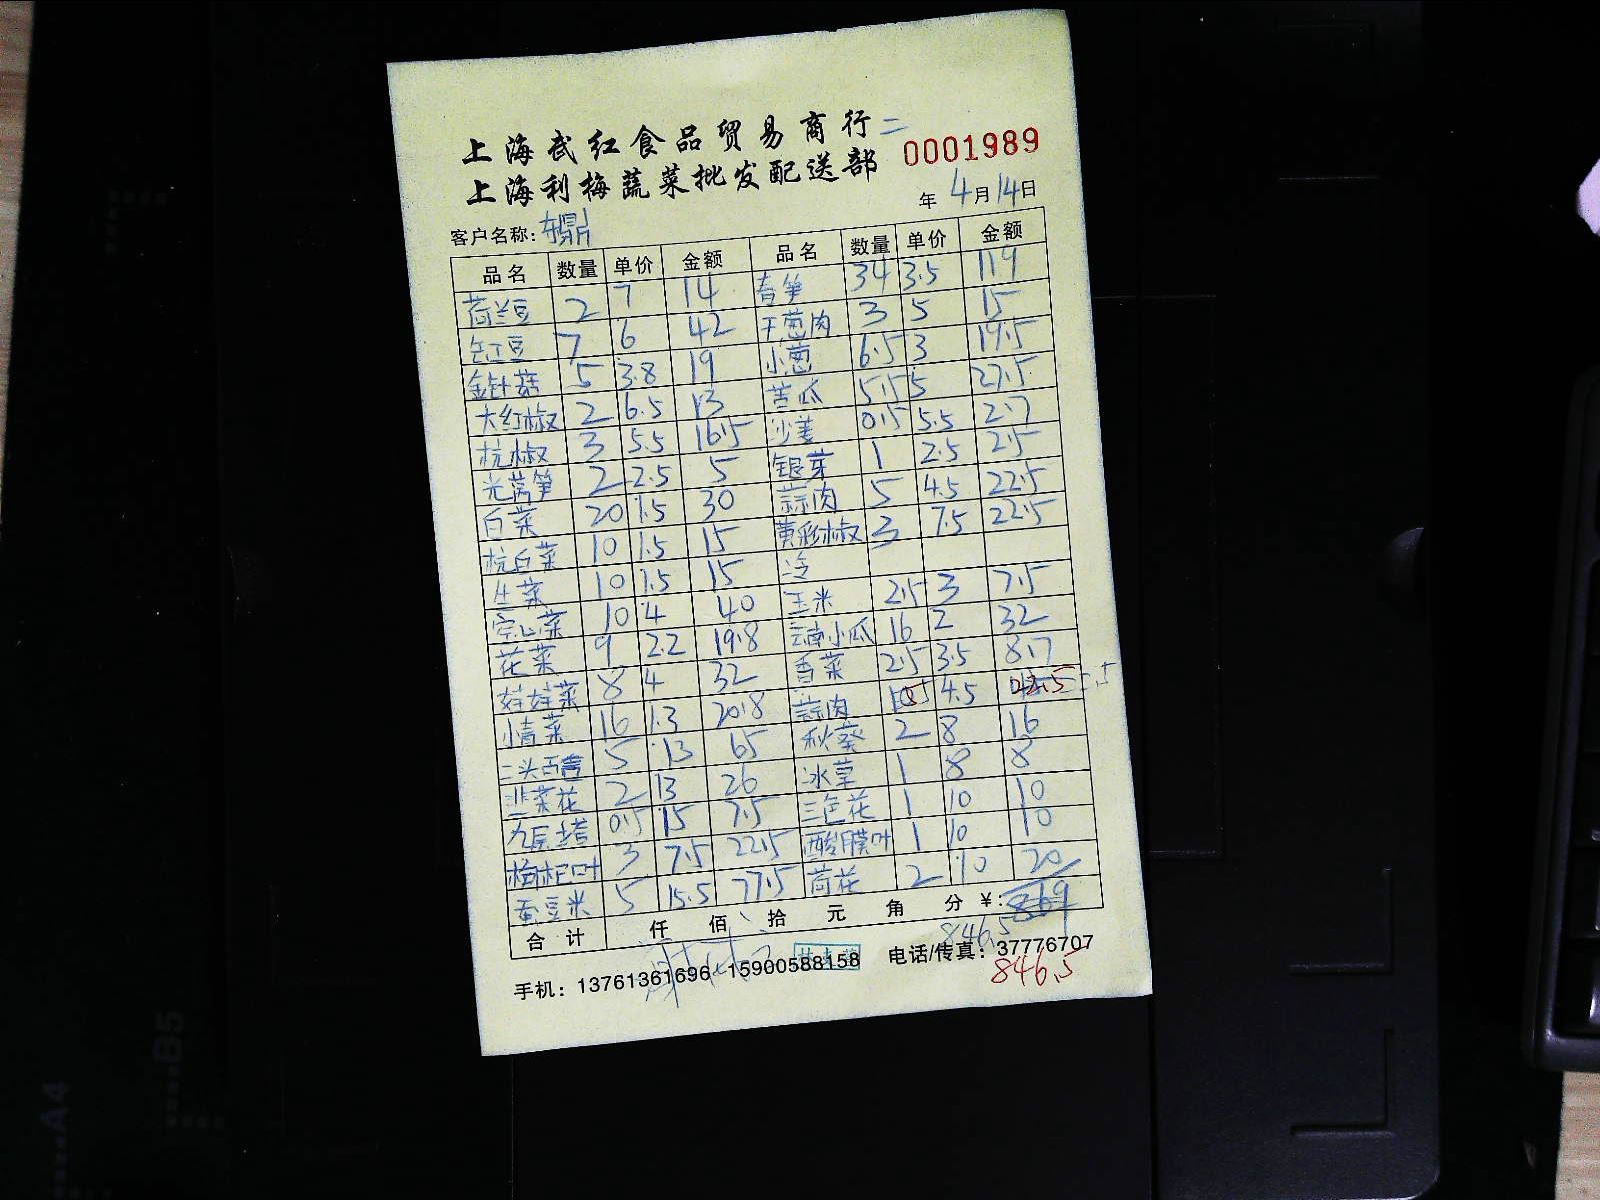 上海武红食品贸易商行 二
上海利梅蔬菜批发配送部 0001989
年 4月14日
客户名称：东鼎
品名 数量 单价 金额 品名 数量 单价 金额
荷兰豆 2 7 14 春笋 34 3.5 119
缸豆 7 6 42 干葱肉 3 5 15
金针菇 5 3.8 19 小葱 6.5 3 19.5
大红椒 2 6.5 13 苦瓜 5.5 5 27.5
杭椒 3 5.5 16.5 沙姜 0.5 5.5 2.7
光莴笋 2 2.5 5 银芽 1 2.5 2.5
白菜 20 1.5 30 蒜肉 5 4.5 22.5
杭白菜 10 1.5 15 黄彩椒 3 7.5 22.5
生菜 10 1.5 15 冷
空心菜 10 4 40 玉米 2.5 3 7.5
花菜 9 2.2 19.8 云南小瓜 16 2 32
娃娃菜 8 4 32 香菜 2.5 3.5 8.7
小青菜 16 1.3 20.8 蒜肉 5 4.5 22.5
二头百合 5 13 65 秋葵 2 8 16
韭菜花 2 13 26 冰草 1 8 8
九层塔 0.5 15 7.5 三色花 1 10 10
枸杞叶 3 7.5 22.5 酸膜叶 1 10 10
蚕豆米 5 15.5 77.5 荷花 2 10 20
合计 仟 佰 拾 元 角 分 ¥：869
846.5
手机：13761361696 15900588158 电话/传真：37776707
846.5